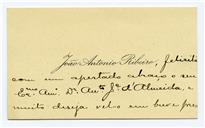 João Antonio Ribeiro, felicita
com um apertado abraço o seu
Ex.mo Am.o Dr. Ant.o J.e d'Almeida, e
muito deseja vel-o em breve